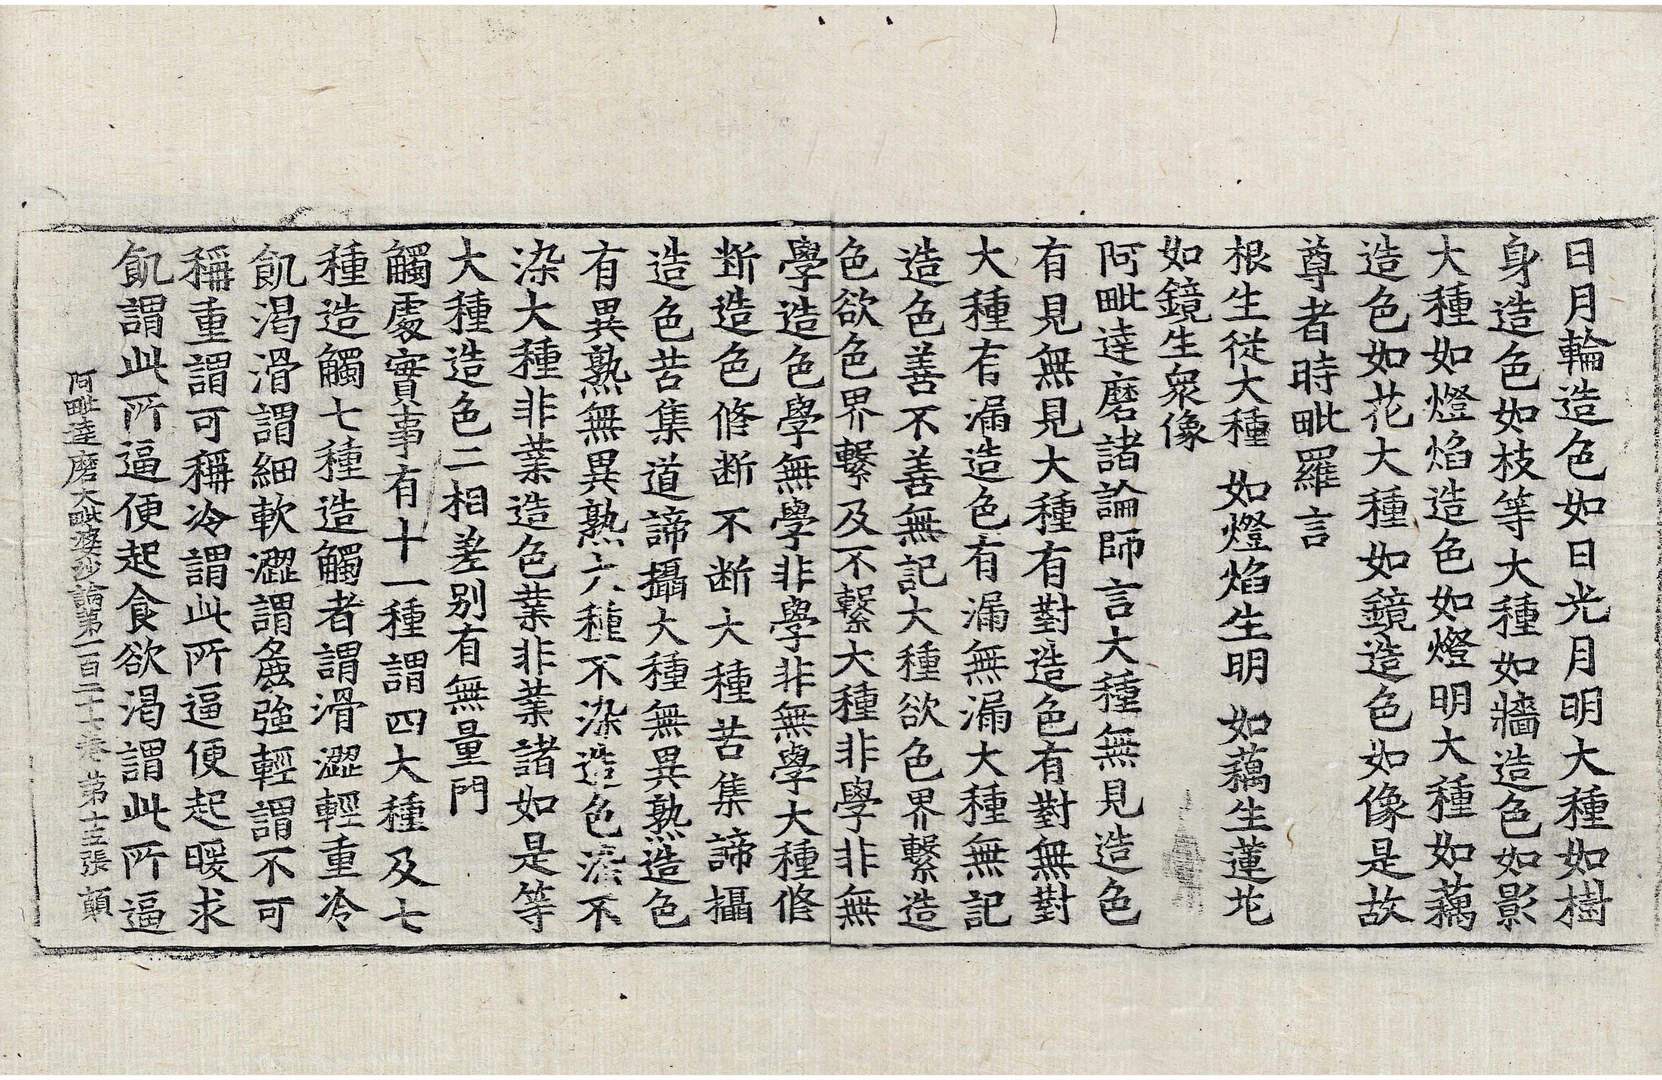 日月輪造色如日光月明大種如樹
身造色如枝等大種如牆造色如影
大種如燈焰造色如燈明大種如藕
造色如花大種如鏡造色如像是故
尊者時毗羅言
根生從大種　如燈焰生明　如藕生蓮花
如鏡生衆像
阿毗達磨諸論師言大種無見造色
有見無見大種有對造色有對無對
大種有漏造色有漏無漏大種無記
造色善不善無記大種欲色界繫造
色欲色界繫及不繫大種非學非無
學造色學無學非學非無學大種修
断造色修断不断大種苦集諦攝
造色苦集道諦攝大種無異熟造色
有異熟無異熟大種不染造色染不
染大種非業造色業非業諸如是等
大種造色二相差別有無量門
觸處實事有十一種謂四大種及七
種造觸七種造觸者謂滑澀輕重冷
飢渴滑謂細軟澀謂麁強輕謂不可
稱重謂可稱冷謂此所逼便起暖求
飢謂此所逼便起食欲渴謂此所逼
阿毗達磨大毗婆沙論第一百二十七卷　第十三張　顚